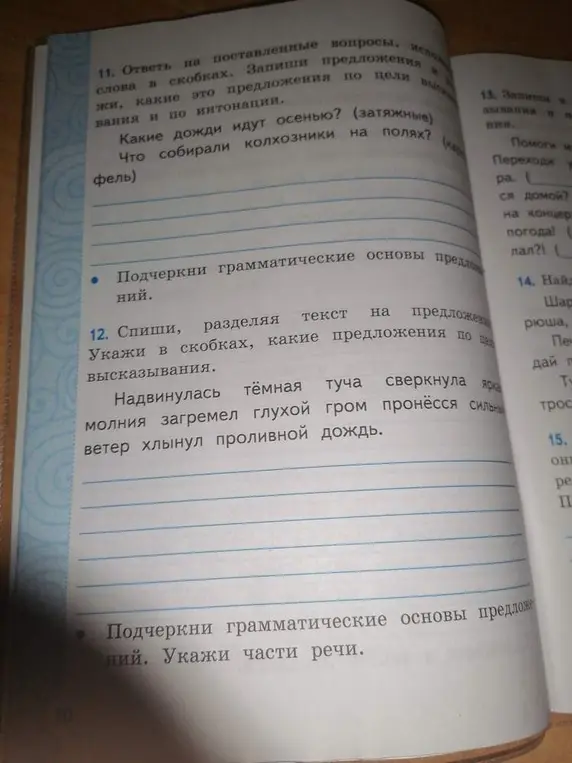 11. Ответь на поставленные вопросы,
слова в скобках. Запиши предложения и
жи, какие это предложения по цели
вания и по интонации.
Какие дожди идут осенью? (затяжные)
Что собирали колхозники на полях?
фель)
• Подчеркни грамматические основы предложе
ний.
12. Спиши, разделяя текст на предложения.
Укажи в скобках, какие предложения по цели
высказывания.
Надвинулась тёмная туча сверкнула яркая
молния загремел глухой гром пронёсся сильный
ветер хлынул проливной дождь.
• Подчеркни грамматические основы предложе
ний. Укажи части речи.
10
13. Запиши
зывания и
ния.
Помоги
Переходи
ра. (
ся домой?
на концер
погода! (
лал?! (
14. Найд
Шар
рюша,
дай
трос
15.
он
ре
П